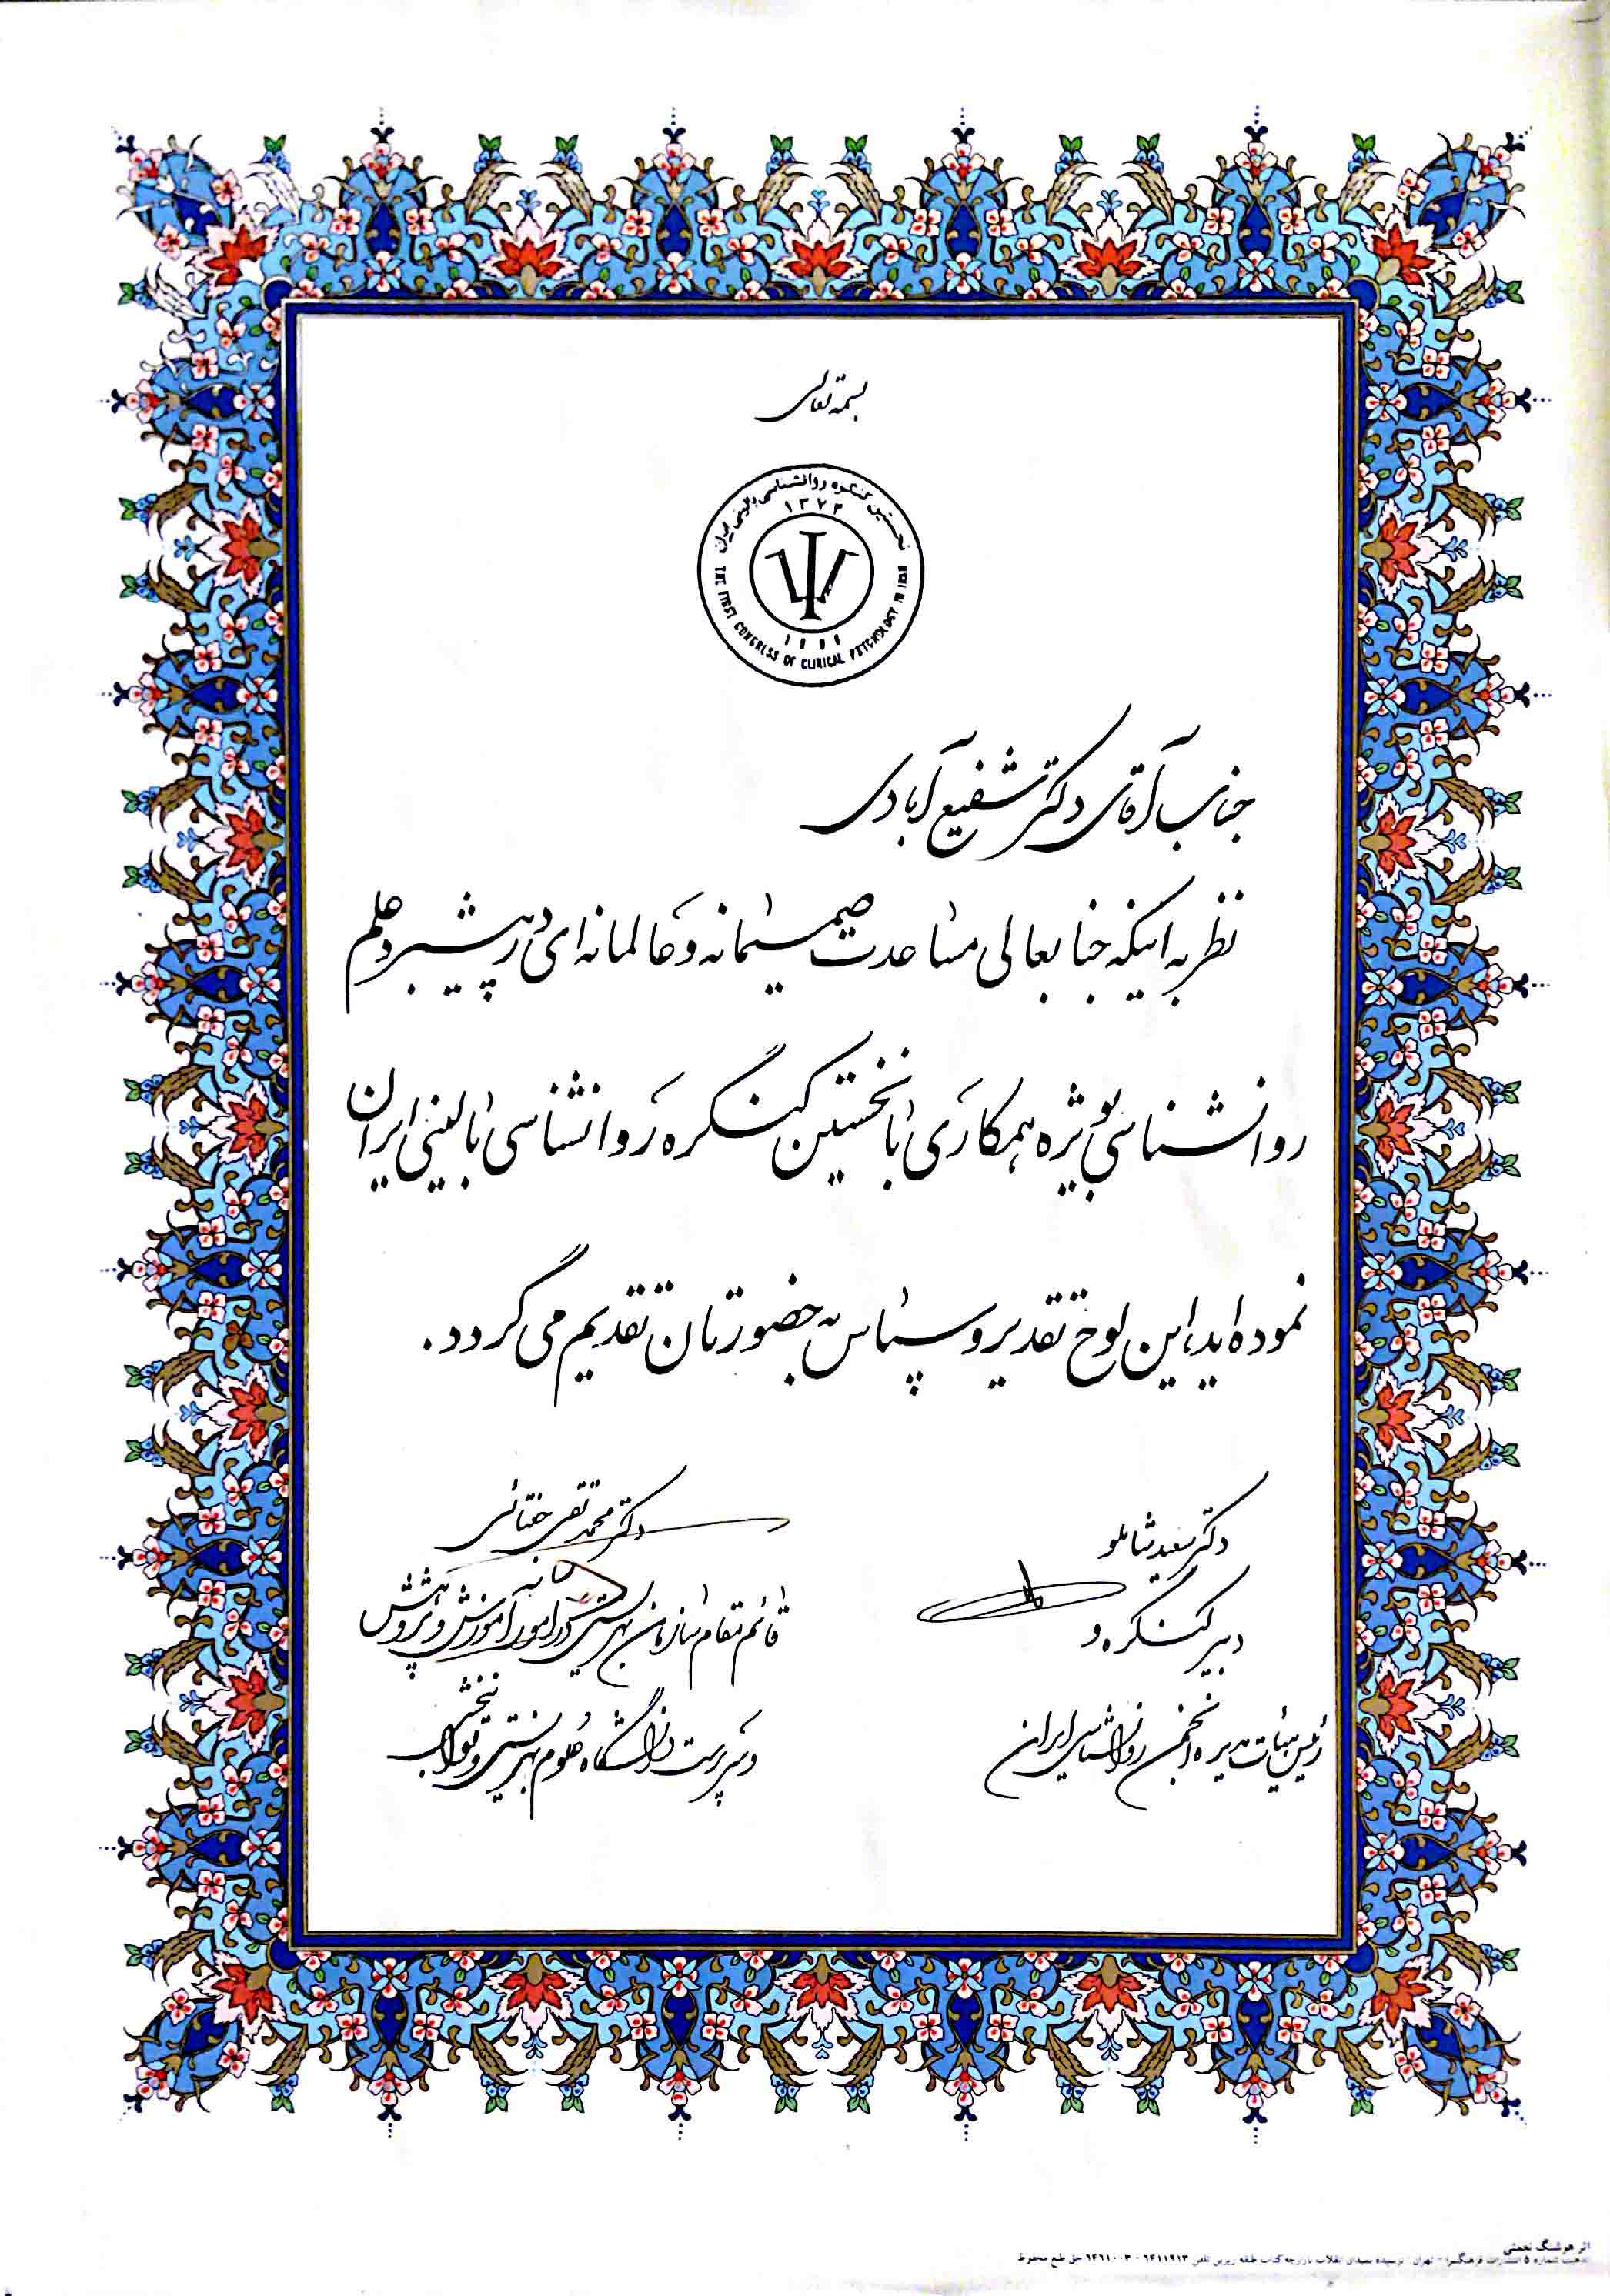 بسمه تعالی
نخستین کنگره روانشناسی بالینی ایران
۱۳۷۲
THE FIRST CONGRESS OF CLINICAL PSYCHOLOGY IN IRAN
جناب آقای دکتر شفیع آبادی
نظر به اینکه جنابعالی مساعدت صمیمانه و عالمانه ای در پیشبرد علم
روانشناسی بویژه همکاری با نخستین کنگره روانشناسی بالینی ایران
نموده اید، این لوح تقدیر و سپاس به حضورتان تقدیم می گردد.
دکتر سعید شاملو
دبیر کنگره و
رئیس هیئت مدیره انجمن روانشناسی ایران
دکتر محمد تقی جغتائی
قائم مقام سازمان بهزیستی در امور آموزش و پژوهش
و سرپرست دانشگاه علوم بهزیستی و توانبخشی
اثر هوشنگ نعمتی